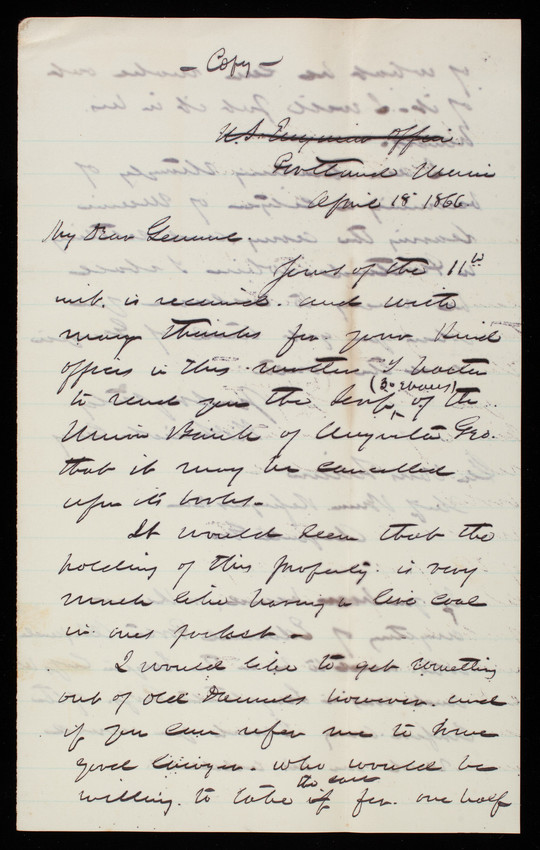 - Copy -
U.S. Engineer Office
Portland Maine
April 18 1866
My Dear General.
Yours of the 11th
inst. is received. and with
many thanks for your kind
offices in this matter I hasten
to send you the Scrip (30 shares) of the
Union Bank of Augusta Geo.
that it may be cancelled
upon its books -
It would seem that the
holding of this property is very
much like having a live coal
in ones pocket -
I would like to get something
out of old however. and
if you can refer me to some
good lawyer. who would be
willing. to take the case if for. one half